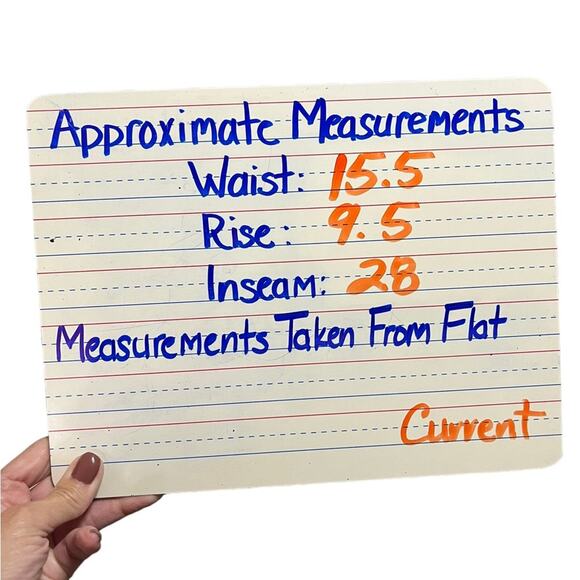 Approximate Measurements
Waist: 15.5
Rise: 9.5
Inseam: 28
Measurements Taken From Flat
Current